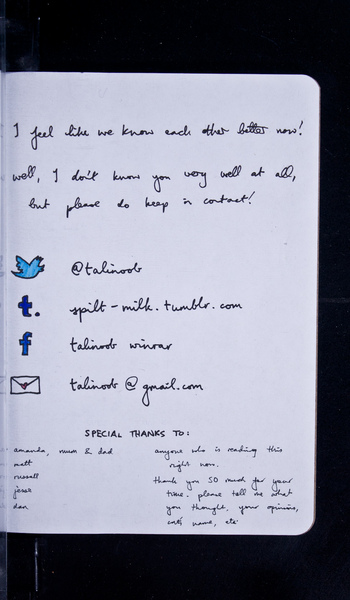 I feel like we know each other better now!
well, I don't know you very well at all,
but please do keep in contact!
@talinoob
t. spilt-milk.tumblr.com
f talinoob winrar
talinoob@gmail.com
SPECIAL THANKS TO:
amanda, mum & dad
matt
russell
jesse
dan
anyone who is reading this
right now.
thank you SO much for your
time. please tell me what
you thought, your opinion,
cat's name, etc